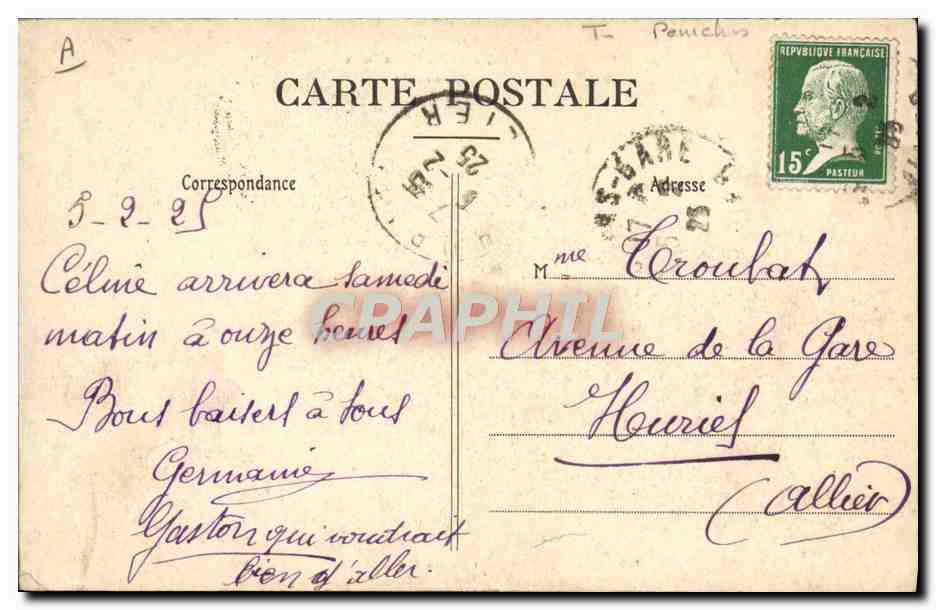 A
T
CARTE POSTALE
REPVBLIQUE FRANÇAISE
15c
PASTEUR
Correspondance
Adresse
5-2-25
Céline arrivera samedi
matin à onze heures
Bons baisers à tous
Germaine
Gaston qui voudrait
bien y aller.
Mme Troubat
Avenue de la Gare
Huriel
(Allier)
ALLIER
5-2
25
GARE
25
CPARAPHIL